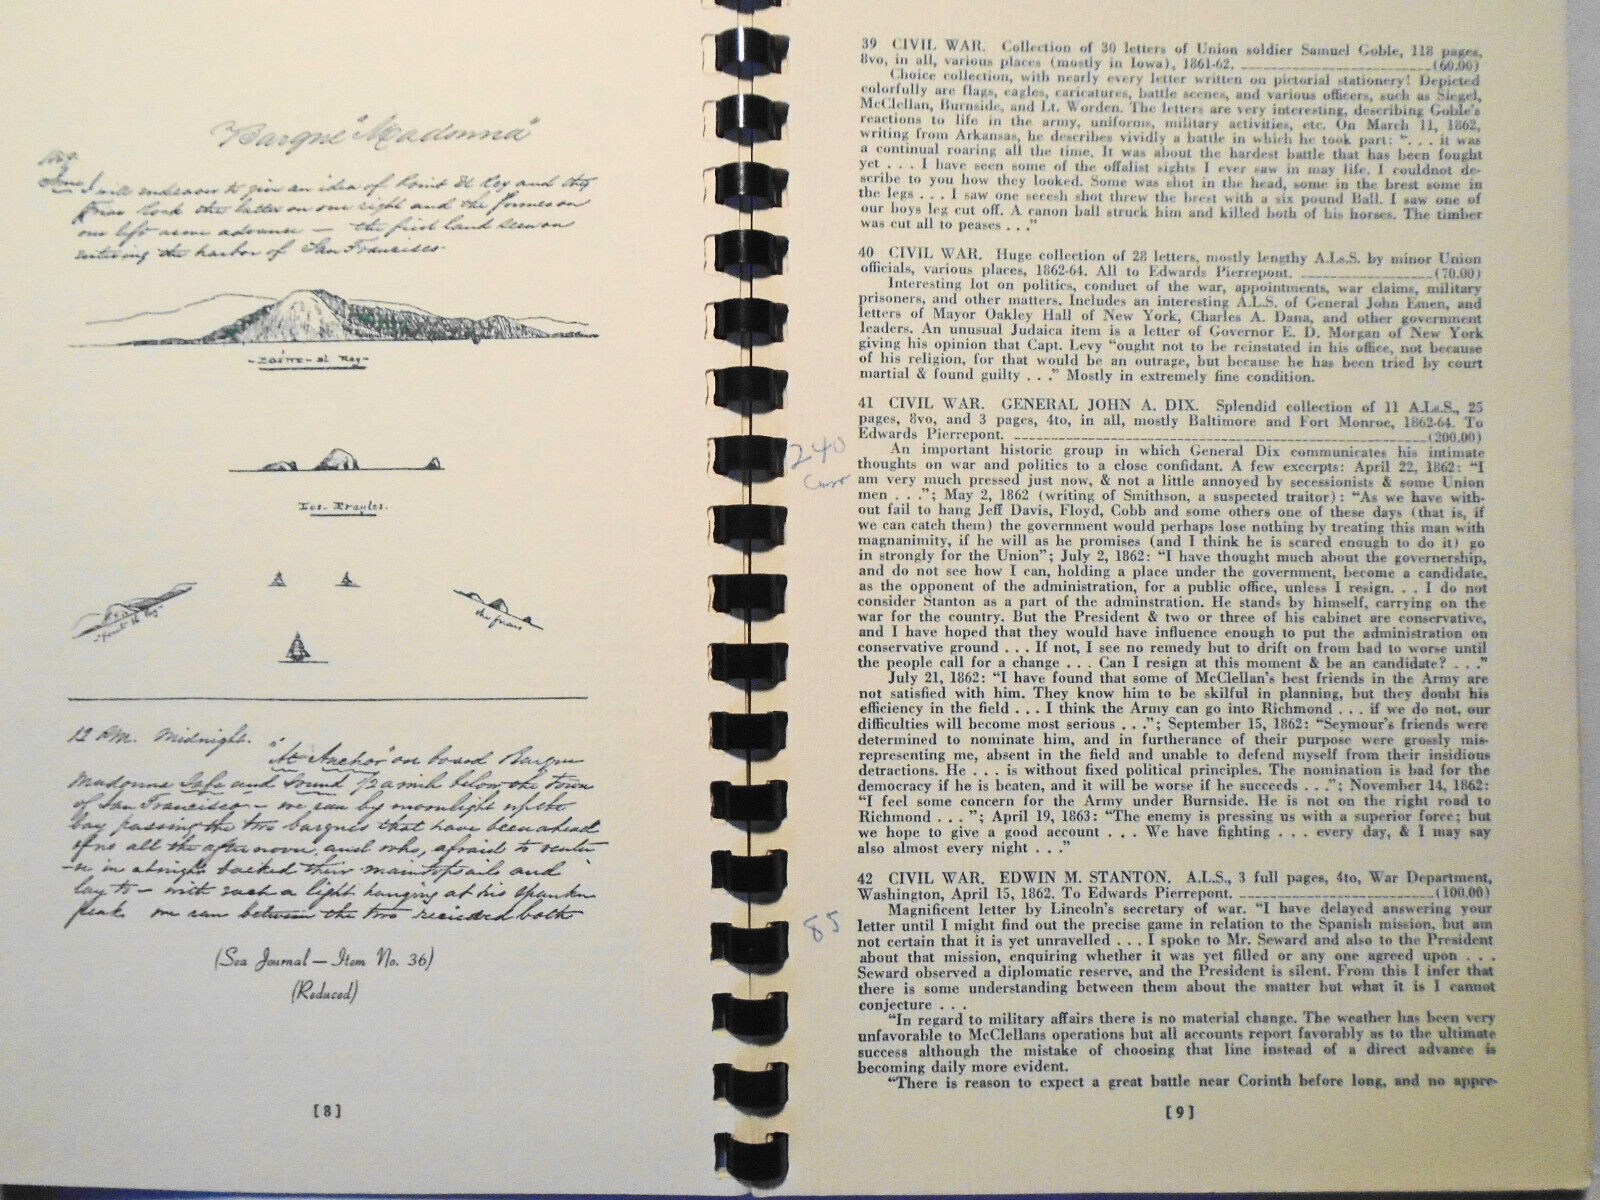 "Barque "Madonna"
I will endeavor to give an idea of Point El Rey and the
Friar Rock the latter on our right and the former on
our left as we advance — the first land seen on
entering the harbor of San Francisco.
Point El Rey
Los Frayles.
12 P.M. Midnight.
"At Anchor" on board Barque
Madonna Safe and Sound 1/2 a mile below the town
of San Francisco — we ran by moonlight up the
bay passing the two barques that have been ahead
of us all the afternoon and who, afraid to ventu
-re in at night backed their maintopsails and
lay to — with such a light hanging at his spanker
peak we ran between the two received both
(Sea Journal — Item No. 36)
(Reduced)
[8]
39 CIVIL WAR. Collection of 30 letters of Union soldier Samuel Goble, 118 pages,
8vo, in all, various places (mostly in Iowa), 1861-62. (60.00)
Choice collection, with nearly every letter written on pictorial stationery! Depicted
colorfully are flags, eagles, caricatures, battle scenes, and various officers, such as Siegel,
McClellan, Burnside, and Lt. Worden. The letters are very interesting, describing Goble's
reactions to life in the army, uniforms, military activities, etc. On March 11, 1862,
writing from Arkansas, he describes vividly a battle in which he took part: ". . . it was
a continual roaring all the time. It was about the hardest battle that has been fought
yet . . . I have seen some of the offalist sights I ever saw in may life. I couldnot de-
scribe to you how they looked. Some was shot in the head, some in the brest some in
the legs . . . I saw one secesh shot threw the brest with a six pound Ball. I saw one of
our boys leg cut off. A canon ball struck him and killed both of his horses. The timber
was cut all to peases . . ."
40 CIVIL WAR. Huge collection of 28 letters, mostly lengthy A.Ls.S. by minor Union
officials, various places, 1862-64. All to Edwards Pierrepont. (70.00)
Interesting lot on politics, conduct of the war, appointments, war claims, military
prisoners, and other matters. Includes an interesting A.L.S. of General John Emen, and
letters of Mayor Oakley Hall of New York, Charles A. Dana, and other government
leaders. An unusual Judaica item is a letter of Governor E. D. Morgan of New York
giving his opinion that Capt. Levy "ought not to be reinstated in his office, not because
of his religion, for that would be an outrage, but because he has been tried by court
martial & found guilty . . ." Mostly in extremely fine condition.
41 CIVIL WAR. GENERAL JOHN A. DIX. Splendid collection of 11 A.Ls.S., 25
pages, 8vo, and 3 pages, 4to, in all, mostly Baltimore and Fort Monroe, 1862-64. To
Edwards Pierrepont. (200.00)
240
An important historic group in which General Dix communicates his intimate
thoughts on war and politics to a close confidant. A few excerpts: April 22, 1862: "I
am very much pressed just now, & not a little annoyed by secessionists & some Union
men . . ."; May 2, 1862 (writing of Smithson, a suspected traitor): "As we have with-
out fail to hang Jeff Davis, Floyd, Cobb and some others one of these days (that is, if
we can catch them) the government would perhaps lose nothing by treating this man with
magnanimity, if he will as he promises (and I think he is scared enough to do it) go
in strongly for the Union"; July 2, 1862: "I have thought much about the governership,
and do not see how I can, holding a place under the government, become a candidate,
as the opponent of the administration, for a public office, unless I resign. . . I do not
consider Stanton as a part of the adminstration. He stands by himself, carrying on the
war for the country. But the President & two or three of his cabinet are conservative,
and I have hoped that they would have influence enough to put the administration on
conservative ground . . . If not, I see no remedy but to drift on from bad to worse until
the people call for a change . . . Can I resign at this moment & be an candidate? . . ."
July 21, 1862: "I have found that some of McClellan's best friends in the Army are
not satisfied with him. They know him to be skilful in planning, but they doubt his
efficiency in the field . . . I think the Army can go into Richmond . . . if we do not, our
difficulties will become most serious . . ."; September 15, 1862: "Seymour's friends were
determined to nominate him, and in furtherance of their purpose were grossly mis-
representing me, absent in the field and unable to defend myself from their insidious
detractions. He . . . is without fixed political principles. The nomination is bad for the
democracy if he is beaten, and it will be worse if he succeeds . . ."; November 14, 1862:
"I feel some concern for the Army under Burnside. He is not on the right road to
Richmond . . . "; April 19, 1863: "The enemy is pressing us with a superior force; but
we hope to give a good account . . . We have fighting . . . every day, & I may say
also almost every night . . ."
42 CIVIL WAR. EDWIN M. STANTON. A.L.S., 3 full pages, 4to, War Department,
Washington, April 15, 1862. To Edwards Pierrepont. (100.00)
85
Magnificent letter by Lincoln's secretary of war. "I have delayed answering your
letter until I might find out the precise game in relation to the Spanish mission, but am
not certain that it is yet unravelled . . . I spoke to Mr. Seward and also to the President
about that mission, enquiring whether it was yet filled or any one agreed upon . . .
Seward observed a diplomatic reserve, and the President is silent. From this I infer that
there is some understanding between them about the matter but what it is I cannot
conjecture . . .
"In regard to military affairs there is no material change. The weather has been very
unfavorable to McClellans operations but all accounts report favorably as to the ultimate
success although the mistake of choosing that line instead of a direct advance is
becoming daily more evident.
"There is reason to expect a great battle near Corinth before long, and no appre-
[9]